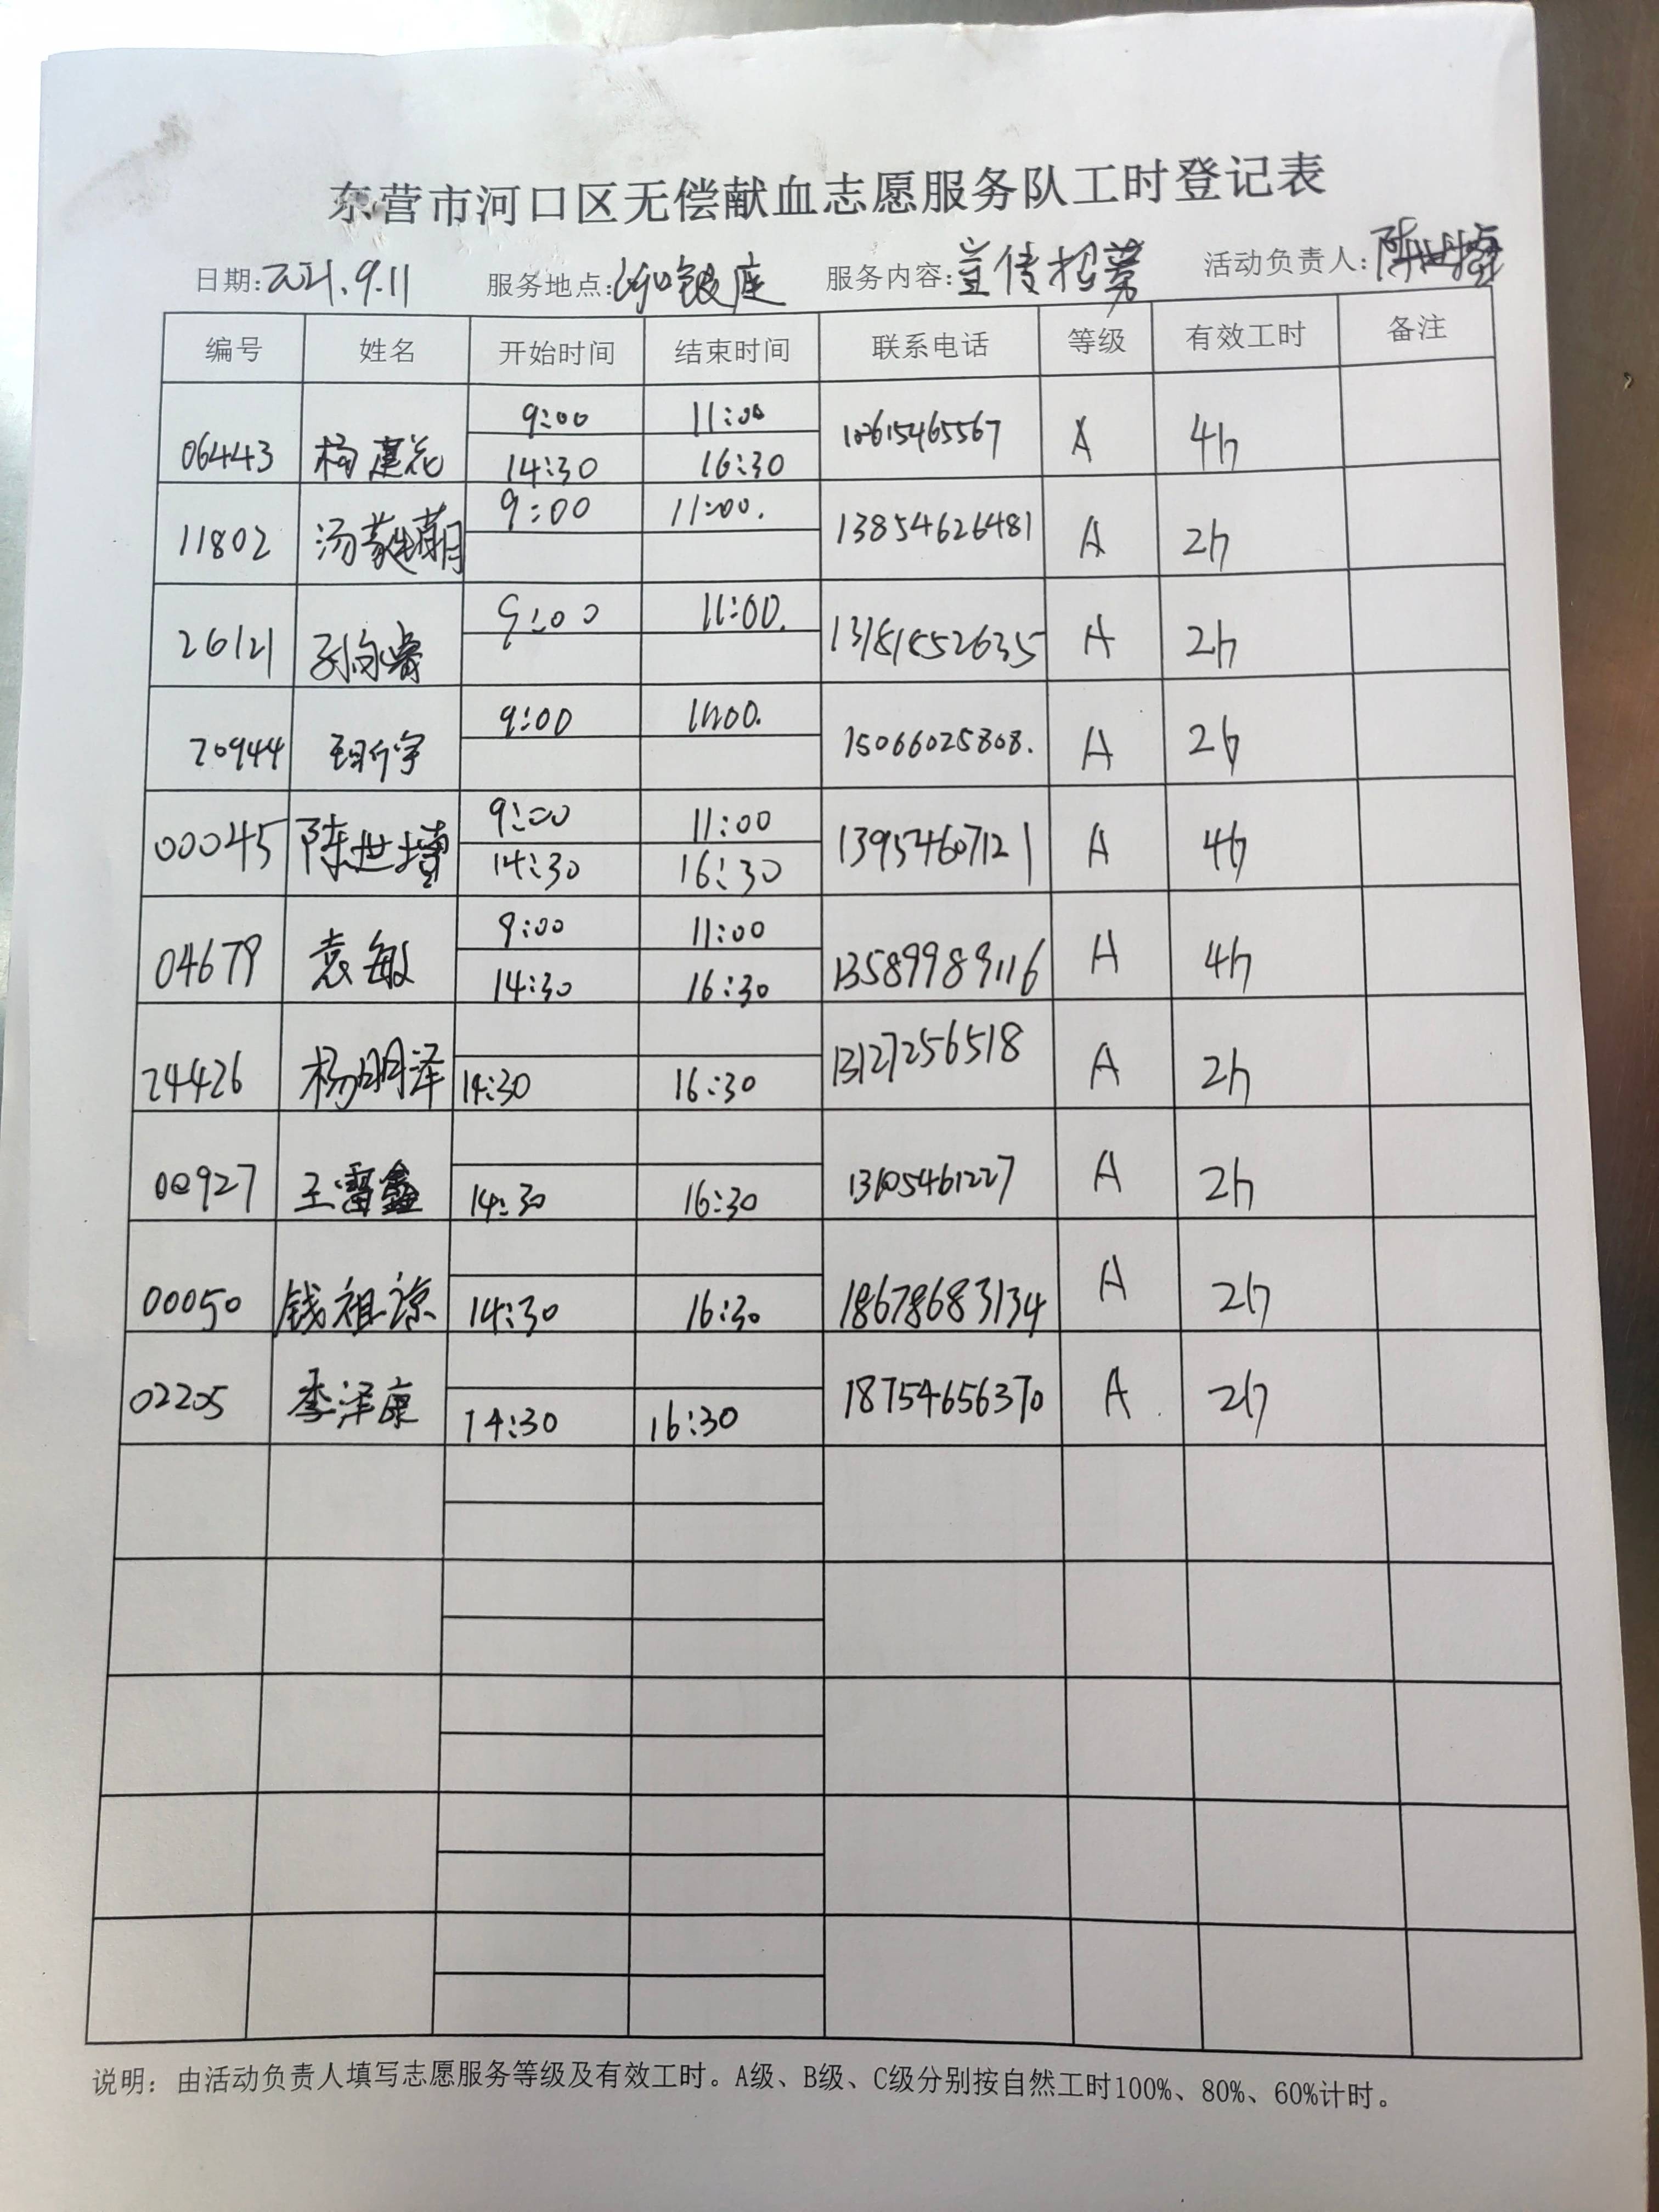 东营市河口区无偿献血志愿服务队工时登记表
日期:2021.9.11 服务地点:河口银座 服务内容:宣传招募 活动负责人:陈世
编号 姓名 开始时间 结束时间 联系电话 等级 有效工时 备注
9:00 11:00
06443 杨莲花 15465567 A 4h
14:30 16:30
9:00 11:00.
11802 汤 13854626481 A 2h
9:00 11:00.
26121 孙向睿 13181852635 A 2h
9:00 11:00.
20944 15066025808. A 2h
9:00 11:00
00045 陈世 13954607121 A 4h
14:30 16:30
9:00 11:00
04679 袁敏 13589989116 A 4h
14:30 16:30
24426 杨明泽 13127256518 A 2h
14:30 16:30
00927 王雷鑫 13605461227 A 2h
14:30 16:30
00050 钱祖谅 18678683134 A 2h
14:30 16:30
02205 季泽康 18754656370 A 2h
14:30 16:30
说明：由活动负责人填写志愿服务等级及有效工时。A级、B级、C级分别按自然工时100%、80%、60%计时。